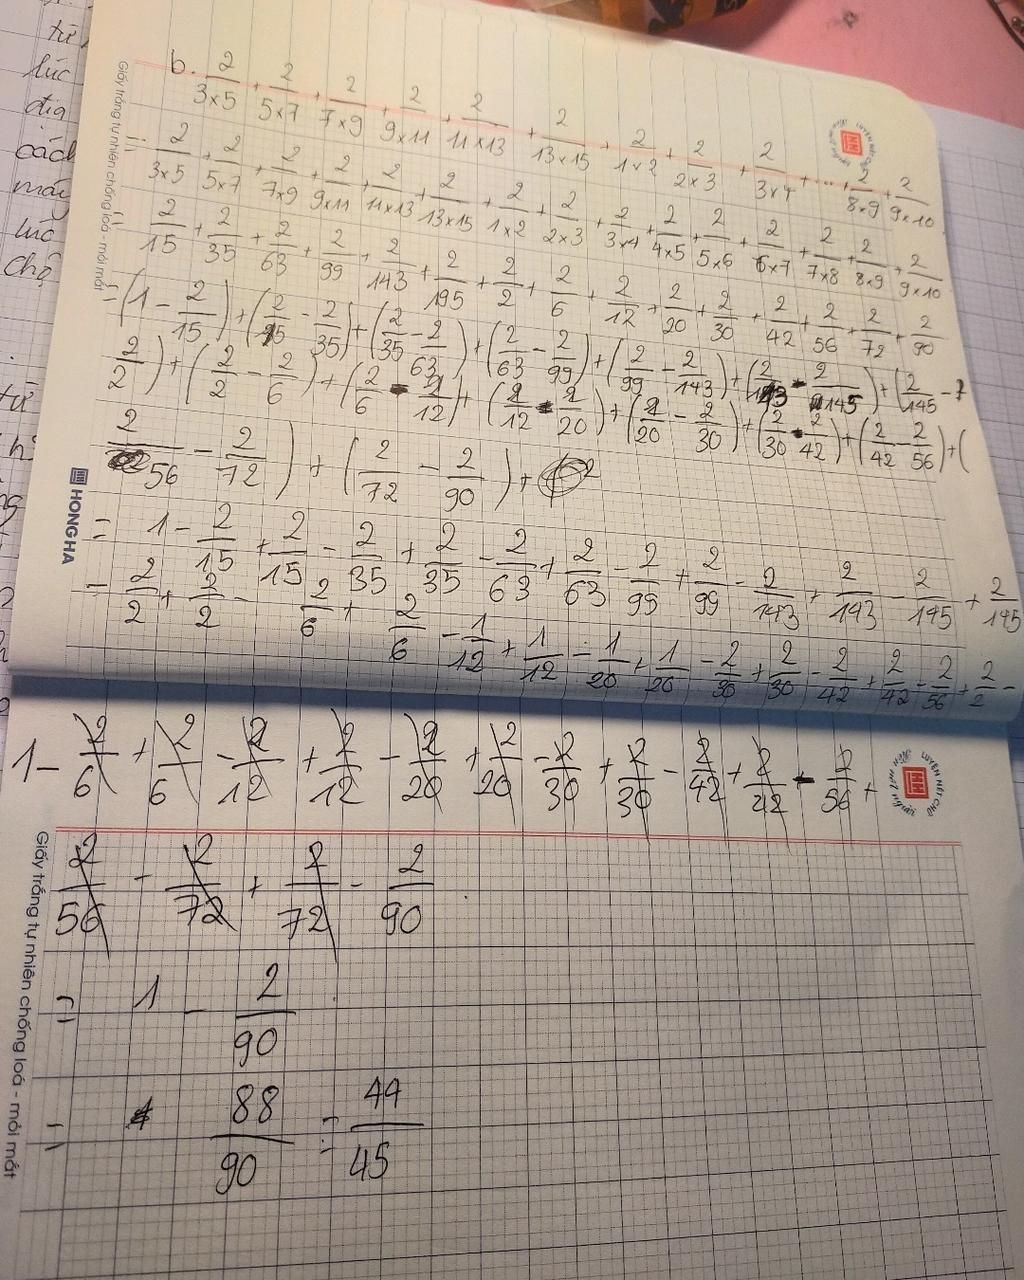 từ
lúc
địa
cách
mấy
lúc
chỗ
Giấy trắng tự nhiên chống loá - mỏi mắt
LUYỆN NÉT CHỮ
b. 2/3×5 + 2/5×7 + 2/7×9 + 2/9×11 + 2/11×13 + 2/13×15 + 2/1×2 + 2/2×3 + 2/3×4 + ... + 2/8×9 + 2/9×10
= 2/3×5 + 2/5×7 + 2/7×9 + 2/9×11 + 2/11×13 + 2/13×15 + 2/1×2 + 2/2×3 + 2/3×4 + 2/4×5 + 2/5×6 + 2/6×7 + 2/7×8 + 2/8×9 + 2/9×10
= 2/15 + 2/35 + 2/63 + 2/99 + 2/143 + 2/195 + 2/2 + 2/6 + 2/12 + 2/20 + 2/30 + 2/42 + 2/56 + 2/72 + 2/90
= (1 - 2/15) + (2/15 - 2/35) + (2/35 - 2/63) + (2/63 - 2/99) + (2/99 - 2/143) + (2/143 - 2/145) + (2/145 -
2/2) + (2/2 - 2/6) + (2/6 - 2/12) + (2/12 - 2/20) + (2/20 - 2/30) + (2/30 - 2/42) + (2/42 - 2/56) + (
2/56 - 2/72) + (2/72 - 2/90) +
HONG HA
= 1 - 2/15 + 2/15 - 2/35 + 2/35 - 2/63 + 2/63 - 2/99 + 2/99 - 2/143 + 2/143 - 2/145 + 2/145
- 2/2 + 2/2 - 2/6 + 2/6 - 1/12 + 1/12 - 1/20 + 1/20 - 2/30 + 2/30 - 2/42 + 2/42 - 2/56 + 2/2 -
1 - 2/6 + 2/6 - 2/12 + 2/12 - 2/20 + 2/20 - 2/30 + 2/30 - 2/42 + 2/42 - 2/56 +
LUYỆN NÉT CHỮ
Giấy trắng tự nhiên chống loá - mỏi mắt
2/56 - 2/72 + 2/72 - 2/90
= 1 - 2/90
= 88/90 = 44/45